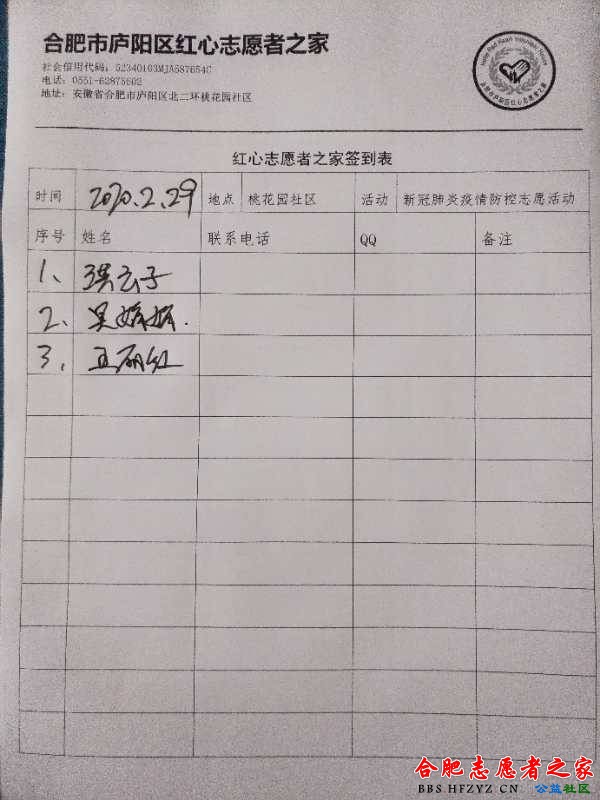 合肥市庐阳区红心志愿者之家
社会信用代码：52340103MJA587654C
电话：0551-62875602
地址：安徽省合肥市庐阳区北二环桃花园社区
合肥市庐阳区红心志愿者之家
红心志愿者之家签到表
时间 2020.2.29 地点 桃花园社区 活动 新冠肺炎疫情防控志愿活动
序号 姓名 联系电话 QQ 备注
1、 子
2、 吴婷婷.
3、 王丽红
合肥志愿者之家
BBS.HFZYZ.CN 公益社区